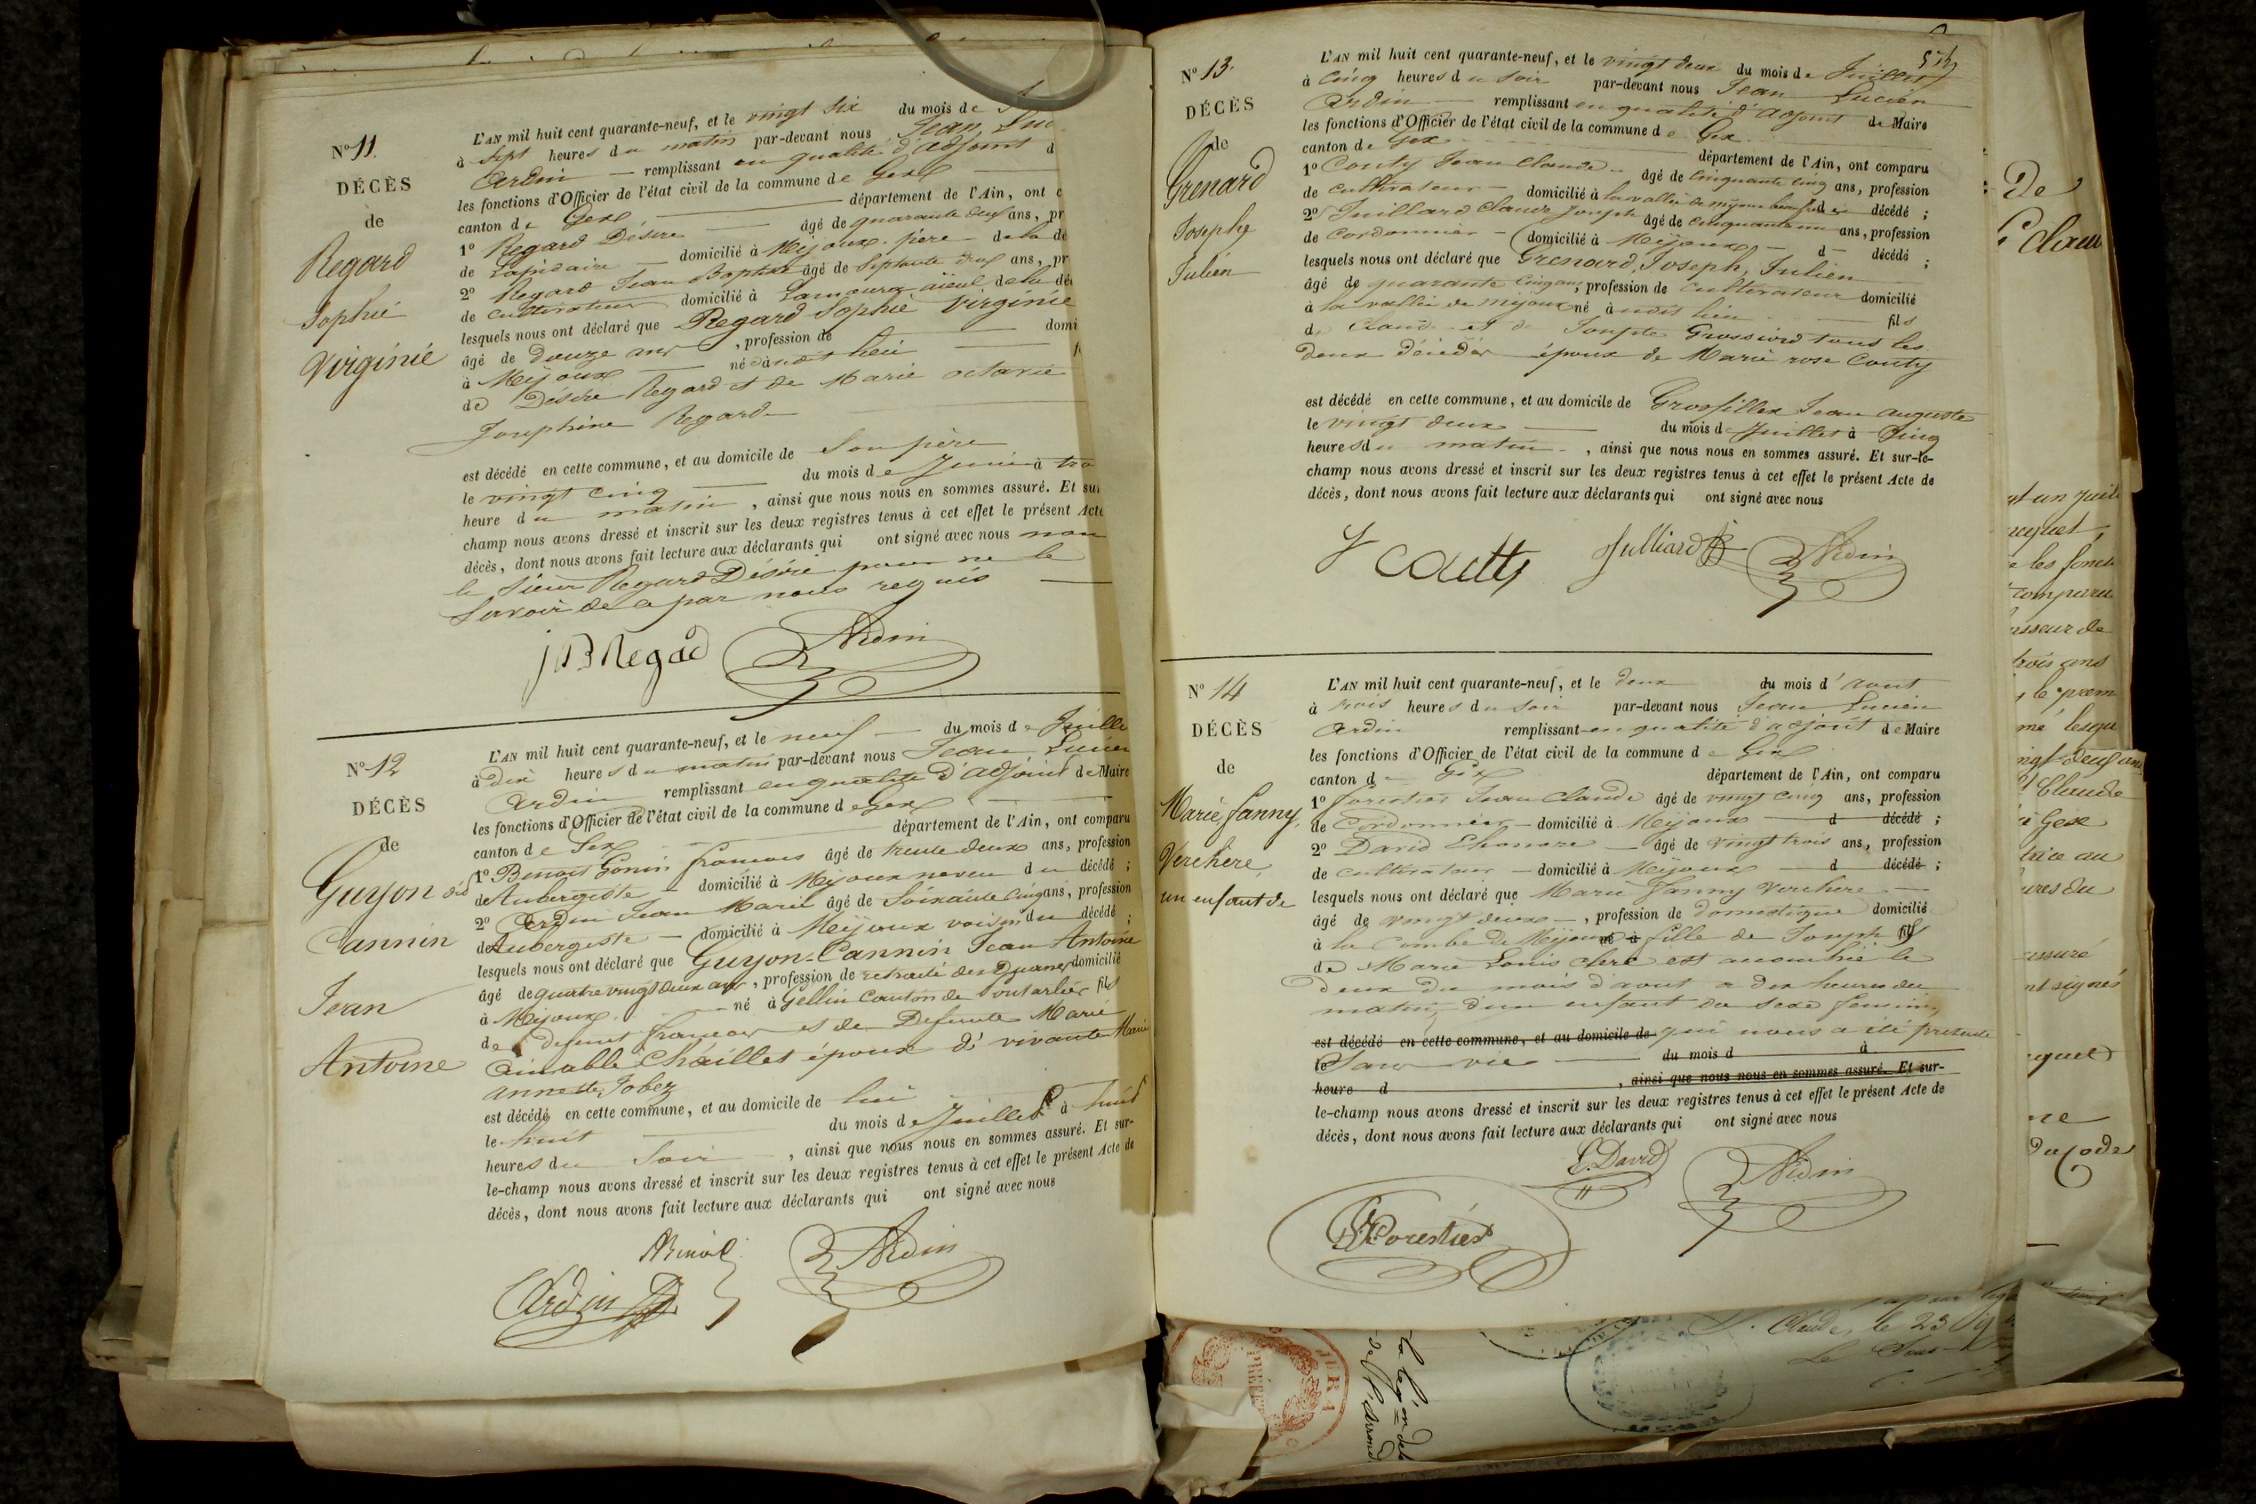 N° 11.
DÉCÈS
de
Regard
Sophie
Virginie
L'AN mil huit cent quarante-neuf, et le vingt six du mois de
à sept heures du matin par-devant nous Jean Luc
Ardin — remplissant en qualité d'adjoint d
les fonctions d'Officier de l'état civil de la commune de Gex
canton de Gex — département de l'Ain, ont c
1° Regard Désiré — âgé de quarante deux ans, pr
de Lapidaire — domicilié à Mijoux père de la dé
2° Regard Jean Baptiste âgé de Septante deux ans, pr
de cultivateur domicilié à Lamoura aïeul de la dé
lesquels nous ont déclaré que Regard Sophie Virginie
âgé de douze ans , profession de — domi
à Mijoux — né à audit lieu — f
de Désiré Regard et de Marie octavie
Josephine Regard —
est décédé en cette commune, et au domicile de Son père
le vingt cinq — du mois de Juin à tro
heure du matin , ainsi que nous nous en sommes assuré. Et sur
champ nous avons dressé et inscrit sur les deux registres tenus à cet effet le présent Acte
décès, dont nous avons fait lecture aux déclarants qui ont signé avec nous non
le Sieur Regard Désiré pour ne le
Savoir de ce par nous requis —
JB Regad Ardin
N° 12
DÉCÈS
de
Guyon dit
Cannin
Jean
Antoine
L'AN mil huit cent quarante-neuf, et le neuf — du mois de Juille
à Dix heures du matin par-devant nous Jean Lucien
Ardin remplissant en qualité d'adjoint de Maire
les fonctions d'Officier de l'état civil de la commune de Gex
canton de Gex — département de l'Ain, ont comparu
1° Benoit Gonin françois âgé de trente deux ans, profession
de Aubergiste — domicilié à Mijoux neveu du décédé ;
2° Ardin Jean Marie âgé de Soixante cinq ans, profession
de Aubergiste — domicilié à Mijoux voisin du décédé ;
lesquels nous ont déclaré que Guyon-Cannin Jean Antoine
âgé de quatre vingt deux ans, profession de retraité des Douanes domicilié
à Mijoux — né à Gellin canton de Pontarlier fils
de defunt françois et de Defunte Marie
aimable Chaillet époux d' vivante Marie
anne Jobez
est décédé en cette commune, et au domicile de lui
le huit — du mois de Juillet à huit
heures du Soir , ainsi que nous nous en sommes assuré. Et sur-
le-champ nous avons dressé et inscrit sur les deux registres tenus à cet effet le présent Acte de
décès, dont nous avons fait lecture aux déclarants qui ont signé avec nous
Benoit Ardin
Ardin
N° 13.
DÉCÈS
de
Grenard
Joseph
Julien
L'AN mil huit cent quarante-neuf, et le vingt deux du mois de Juillet
à cinq heures du soir par-devant nous Jean Lucien
Ardin — remplissant en qualité d'adjoint de Maire
les fonctions d'Officier de l'état civil de la commune de Gex
canton de Gex département de l'Ain, ont comparu
1° Couty Jean Claude âgé de cinquante cinq ans, profession
de cultivateur — domicilié à la vallée de mijoux décédé ;
2° Juillard Claude Joseph âgé de cinquante un ans, profession
de Cordonnier — domicilié à Mijoux — d — décédé ;
lesquels nous ont déclaré que Grenard, Joseph, Julien
âgé de quarante cinq ans, profession de cultivateur domicilié
à la vallée de mijoux né à audit lieu — fils
de Claude et de Josephte Grossiord tous les
deux décédés époux de Marie rose Couty
est décédé en cette commune, et au domicile de Grosfillex Jean auguste
le vingt deux — du mois de Juillet à Cinq
heures du matin , ainsi que nous nous en sommes assuré. Et sur-le-
champ nous avons dressé et inscrit sur les deux registres tenus à cet effet le présent Acte de
décès, dont nous avons fait lecture aux déclarants qui ont signé avec nous
Coutty Julliard Ardin
N° 14
DÉCÈS
de
Marie fanny
Verchere
un enfant de
L'AN mil huit cent quarante-neuf, et le deux du mois d'aout
à trois heures du soir par-devant nous Jean Lucien
Ardin remplissant en qualité d'adjoint de Maire
les fonctions d'Officier de l'état civil de la commune de Gex
canton de Gex département de l'Ain, ont comparu
1° forestier Jean Claude âgé de vingt cinq ans, profession
de Cordonnier — domicilié à Mijoux — d décédé ;
2° David Eleonore — âgé de vingt trois ans, profession
de cultivateur — domicilié à Mijoux — d décédé ;
lesquels nous ont déclaré que Marie fanny Verchere —
âgé de vingt deux —, profession de domestique domicilié
à la Combe de Mijoux né à fille de Joseph fils
de Marie Louis clerc est accouchée le
Deux du mois d'aout a dix heures du
matin, d'un enfant du sexe feminin,
est décédé en cette commune, et au domicile de qui nous a été presenté
le Sans vie — du mois d à
heure d , ainsi que nous nous en sommes assuré. Et sur-
le-champ nous avons dressé et inscrit sur les deux registres tenus à cet effet le présent Acte de
décès, dont nous avons fait lecture aux déclarants qui ont signé avec nous
E. David Ardin
Forestier
De
Claude
Gex
assuré
nt signés
du Code
JURA